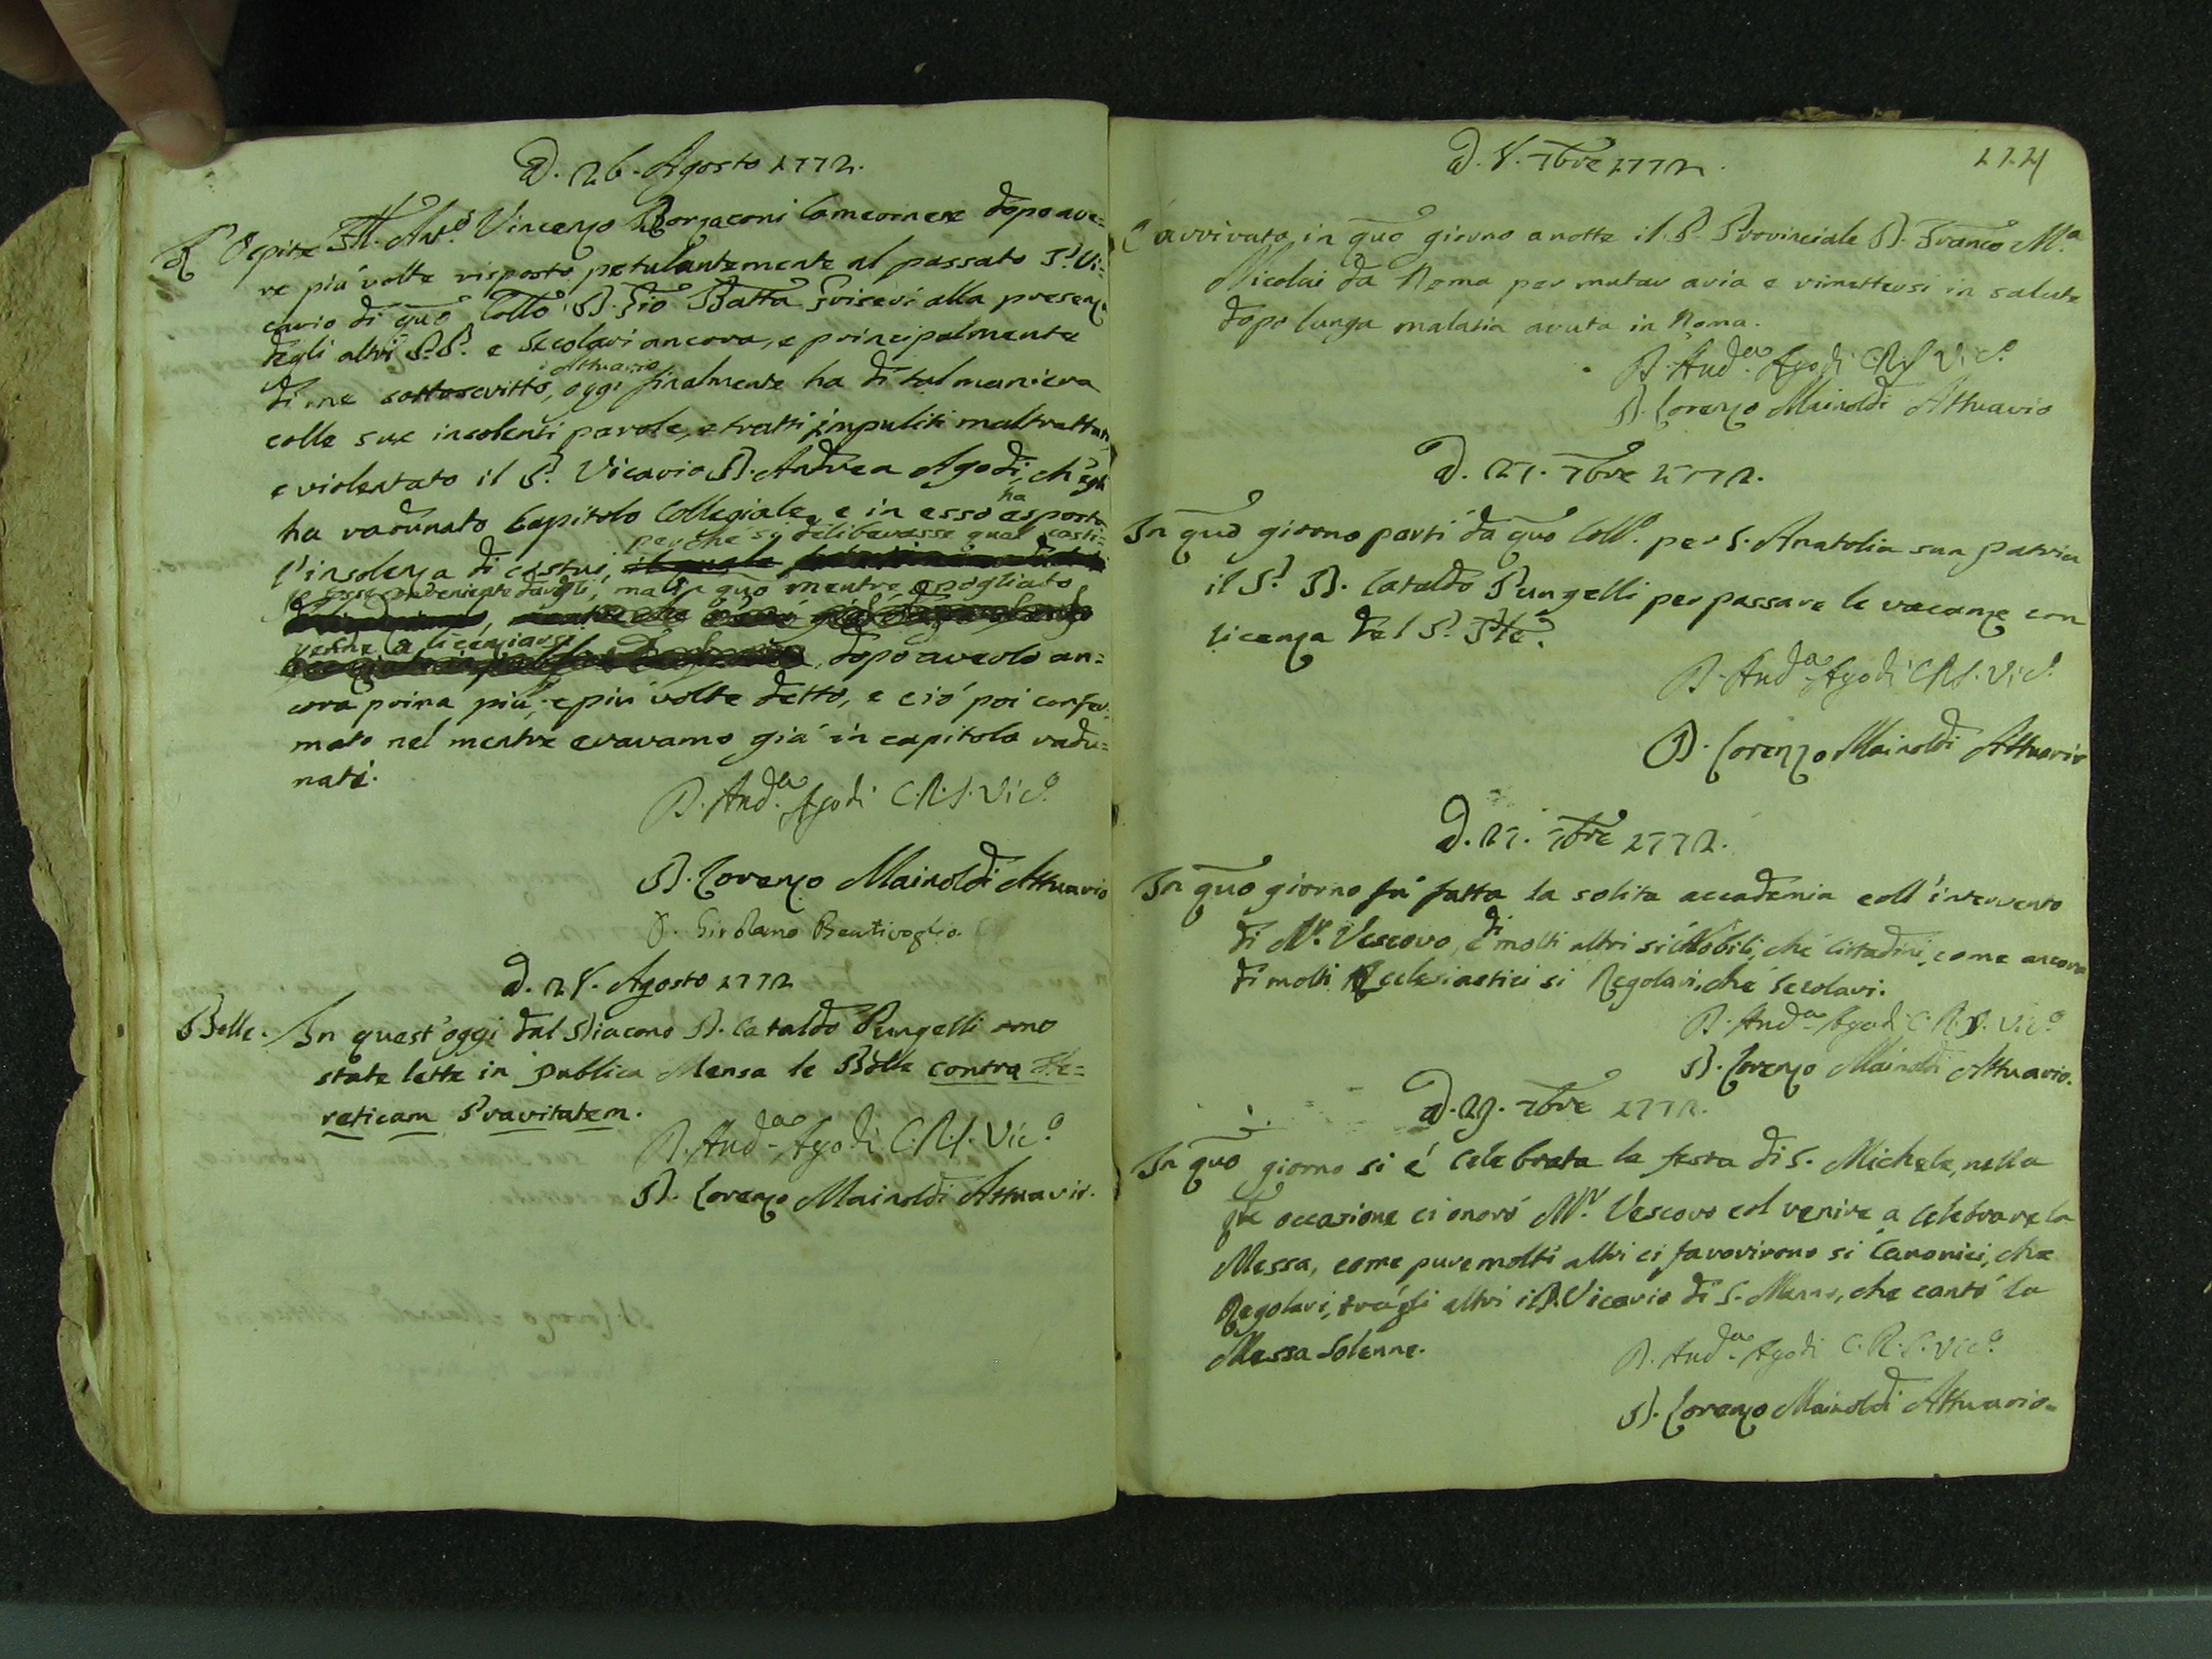 D. 26. Agosto 1772.
L'Ospite Fr. Ant.o Vincenzo Borzaconi Camerinese dopo ave=
re più volte risposto petulantemente al passato P. Vi=
cario di qũo Collo D. Gio Batta Griseri alla presenza
degli altri P.P. e Secolari ancora, e principalmente
di me sottoscritto Attuario, oggi finalmente ha di tal maniera
colle sue insolenti parole, e tratti impuliti maltrattato,
e violentato il P. Vicario D. Andrea Agodi, ch'egli
ha radunato Capitolo Collegiale, e in esso ha esposto
l'insolenza di costui,
perchè si deliberasse qual casti=
go fosse conveniente dargli, ma in qũo mentre, spogliato
venne a licenziarsi, dopo averlo an=
cora prima più, e più volte detto, e ciò poi confer=
mato nel mentre eravamo già in capitolo radu=
nati.
D. And.a Agodi C.R.S. Vic.o
D. Lorenzo Mainoldi Attuario
D. Girolamo Bentivoglio
D. 28. Agosto 1772
Bolle. In quest'oggi dal Diacono D. Cataldo Pungelli sono
state lette in publica Mensa le Bolle contra He=
reticam Pravitatem.
D. And.a Agodi C.R.S. Vic.o
D. Lorenzo Mainoldi Attuario.
124
D. 8. 7bre 1772.
È arrivato in qũo giorno a notte il P. Provinciale D. Franco M.a
Nicolai da Roma per mutar aria e rimettersi in salute
dopo lunga malatia avuta in Roma.
D. And.a Agodi C.R.S. Vic.o
D. Lorenzo Mainoldi Attuario
D. 21. 7bre 1772.
In qũo giorno partì da qũo Coll.o per S. Anatolia sua patria
il P. D. Cataldo Pungelli per passare le vacanze con
licenza del P. Ple.
D. And.a Agodi C.R.S. Vic.o
D. Lorenzo Mainoldi Attuario
D. 27. 7bre 1772.
In qũo giorno fu fatta la solita accademia coll'intervento
di M.r Vescovo, e di molti altri sì Nobili, che Cittadini, come ancora
di molti Ecclesiastici sì Regolari, che Secolari.
D. And.a Agodi C.R.S. Vic.o
D. Lorenzo Mainoldi Attuario.
D. 29. 7bre 1772.
In qũo giorno si è celebrata la festa di S. Michele, nella
qle occasione ci onorò M.r Vescovo col venire a celebrare la
Messa, come pure molti altri ci favorirono sì Canonici, che
Regolari, tra gli altri il P. Vicario di S. Marno, che cantò la
Messa Solenne.
D. And.a Agodi C.R.S. Vic.o
D. Lorenzo Mainoldi Attuario.